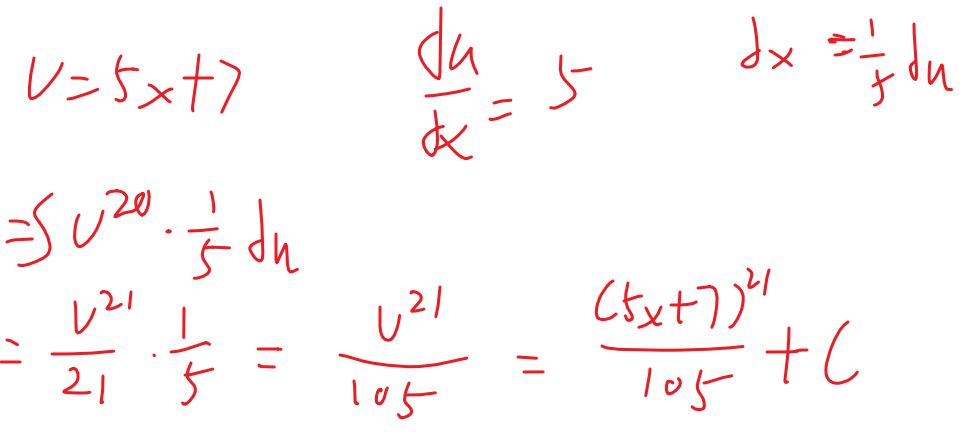 u = 5x+7    du/dx = 5    dx = 1/5 du
= ∫ u^20 · 1/5 du
= u^21/21 · 1/5 = u^21/105 = (5x+7)^21/105 + C